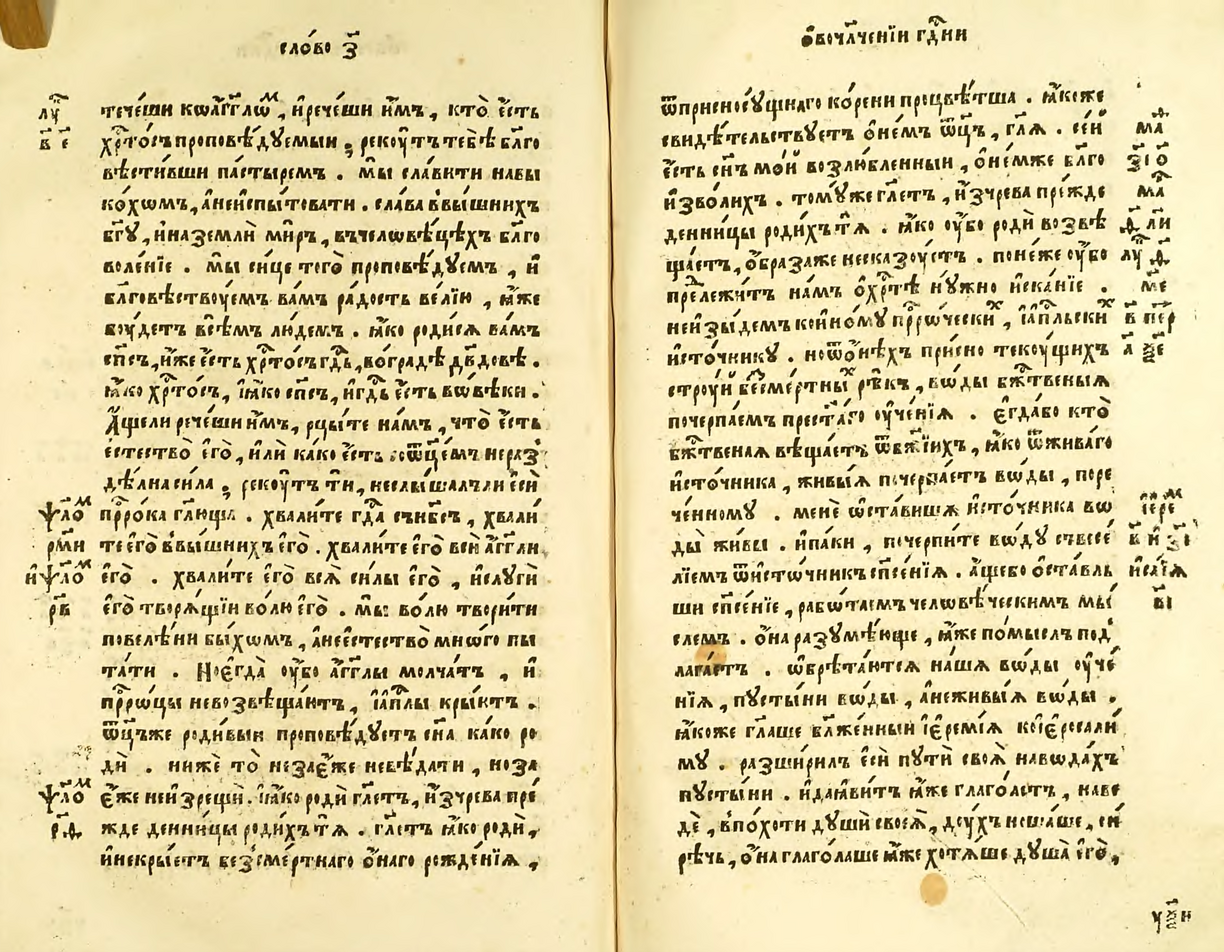 сло́во з҃
лꙋ҇
в҃ є҃
тече́ши кѡа҆́гг҃лѡⷨ, и҆рече́ши и҆̀мъ, кто̀ є҆́сть
хрⷭ҇то́съ проповѣ́дꙋемыи ; рекоу́тъ тебѣ̀ бл҃го
вѣсти́вши па́стыремъ . мы̀ сла́вити навы
ко́хомъ, а҆неиспы́товати . сла́ва ввы́шнихъ
бг҃ꙋ, и҆наземлѝ ми́ръ, въчеловѣ́цѣхъ бл҃го
воле́нїе . мы̀ си́це того̀ проповѣ́дꙋемъ , и҆
бл҃говѣствоу́емъ ва́мъ ра́дость ве́лїю , ꙗ҆́же
боу́детъ всѣ́мъ лю́демъ . ꙗ҆́ко роди́сѧ ва́мъ
сп҃съ, и҆́же є҆́сть хрⷭ҇то́съ гдⷭ҇ь, воградѣ̀ дв҃довѣ .
ꙗ҆́ко хрⷭ҇то́съ, ꙗ҆́ко сп҃съ, и҆гдⷭ҇ь є҆́сть вѡвѣ́ки .
А҆́щели рече́ши и҆̀мъ, рцы́те на́мъ , что̀ є҆́сть
є҆стество̀ є҆го̀ , и҆лѝ ка́ко є҆́сть соѿц҃е́мъ нераз
дѣ́лна си́ла ; рекоу́тъ тѝ, неслы́шалъли є҆сѝ
ѱало́ⷨ
рм҃и
и҆ѱало́ⷨ
рв҃
прⷪ҇ро́ка гл҃юща . хвали́те гдⷭ҇а сън҃бсъ , хвали́
те є҆го̀ ввы́шнихъ є҆го̀ . хвали́те є҆го̀ всѝ а҆́гг҃ли
є҆го̀ . хвали́те є҆го̀ всѧ̀ си́лы є҆го̀ , и҆слꙋгѝ
є҆го̀ творѧ́щїи во́лю є҆го̀ . мы̀ во́лю твори́ти
повелѣ́ни бы́хомъ , а҆неестество̀ мно́го пы
та́ти . Ное҆гда̀ оу҆́бо а҆́гг҃лы молча́тъ , и҆
прⷪ҇ро́цы невозвѣща́ютъ, и҆а҆пⷭ҇лы кры́ютъ .
ѿц҃ъже роди́выи проповѣ́дꙋетъ сн҃а ка́ко ро
дѝ . нижѐ то̀ незае҆́же невѣ́дати , ноза
ѱало́ⷨ
р҃ѳ
є҆́же неи҆зрещѝ . ꙗ҆́ко родѝ гл҃етъ, и҆зчре́ва пре́
жде денни́цы роди́хътѧ . гл҃етъ ꙗ҆́ко родѝ,
и҆некры́етъ безсме́ртнаго о҆́наго рожде́нїѧ ,
о҆воч҃лченїи гдⷭ҇ни
ѿприсносꙋ́щнаго ко́рени процвѣ́тша . ꙗ҆́коже
свидѣ́тельствꙋетъ о҆не́мъ ѿц҃ъ , гл҃ѧ . се́й
є҆́сть сн҃ъ мо́й возлю́бленныи , о҆не́мже бл҃го
и҆зво́лихъ . томꙋ́же гл҃етъ , и҆зчре́ва пре́жде
денни́цы роди́хътѧ . ꙗ҆́ко оу҆́бо родѝ возвѣ
ща́етъ, о҆́браза́же несказоу́етъ . поне́же оу҆́бо
прележи́тъ на́мъ о҆хрⷭ҇тѣ̀ нꙋ́жно и҆ска́нїе .
неи҆зы́демъ кои҆но́мꙋ прⷪ҇ро́ческиⷯ , и҆а҆пⷭ҇льскиⷯ
и҆сто́чникꙋ . ноѿо҆́нѣхъ при́сно текоу́щихъ
строу́й бесме́ртныⷯ рѣ́къ , во́ды бжⷭ҇твеныѧ
почерпа́емъ престⷭ҇а́го оу҆че́нїѧ . є҆гда́бо кто̀
бжⷭ҇твенаѧ вѣща́етъ ѿбж҃їихъ , ꙗ҆́ко ѿжива́го
и҆сто́чника , живы́ѧ почерпа́етъ во́ды , поре
че́нномꙋ . менѐ ѡ҆ста́вишѧ и҆сто́чника во
ды̀ жи́вы . и҆па́ки , почерпи́те во́дꙋ съвесе́
лїемъ ѿи҆сто́чникъ сп҃се́нїѧ . а҆́щебо ѡ҆ста́вль
ши сп҃се́нїе , рабо́таемъ человѣ́ческимъ мы́
слемъ . о҆́на разꙋмѣ́юще , ꙗ҆́же по́мыслъ под
лага́етъ . ѡ҆брѣта́ются на́шѧ во́ды оу҆че́
нїѧ , пꙋсты́ни во́ды , а҆неживы́ѧ во́ды .
ꙗ҆́коже гл҃аше бл҃же́нныи і҆єремі́ѧ коі҆єрⷭ҇сали́
мꙋ . разшири́лъ є҆сѝ пꙋтѝ своѧ̀ навѡда́хъ
пꙋсты́ни . и҆даꙗ҆ви́тъ ꙗ҆́же глаго́летъ , наве
дѐ , впо́хоти дꙋшѝ своеѧ̀ , дꙋ́хъ ноша́ше , си
рѣ́чь , о҆́на глаго́лаше ꙗ҆́же хотѧ́ше дꙋша̀ є҆го̀ ,
маⷴ
з҃ і҃ о
маⷴ
ѱ҃ ли
ме
в҃ пеⷮр
а҃
і҆ереⷨ
в҃ и҆ з҃і
и҆са́їѧ
в҃і